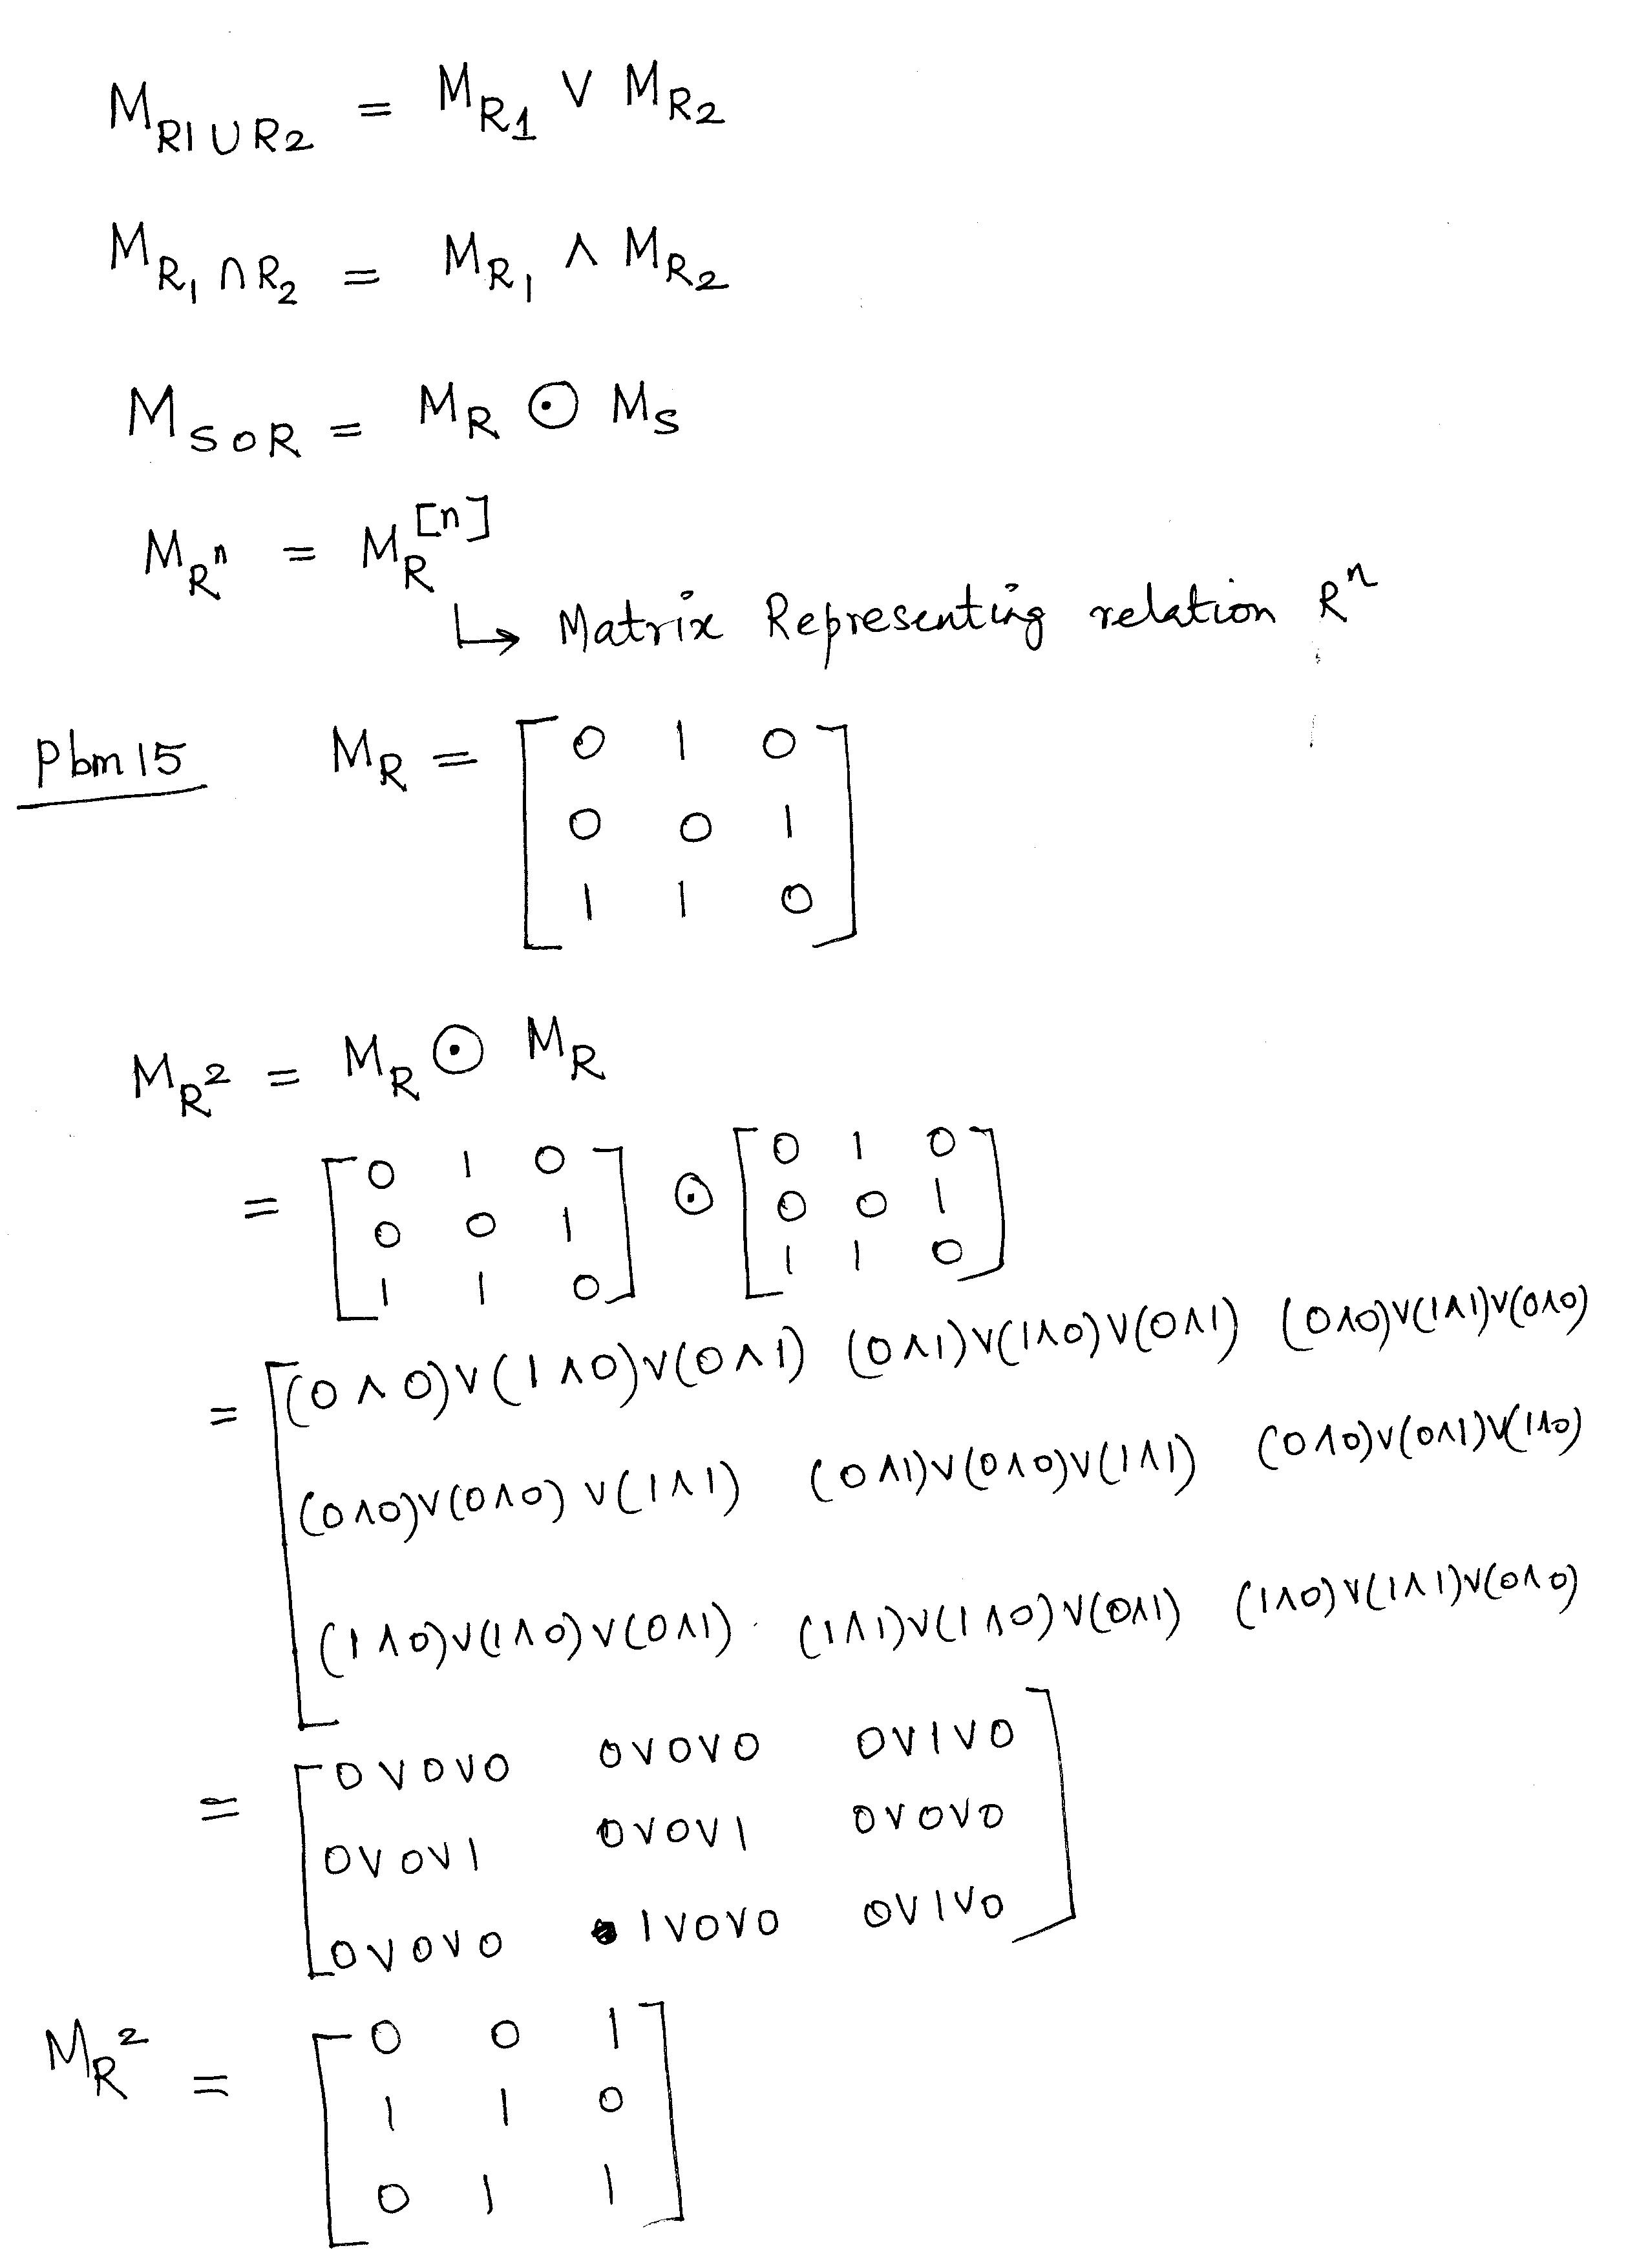 M_{R1 ∪ R2} = M_{R1} ∨ M_{R2}
M_{R1 ∩ R2} = M_{R1} ∧ M_{R2}
M_{SoR} = M_R ⊙ M_S
M_{R^n} = M_R^{[n]}
↳ Matrix Representing relation R^n
Pbm 15 M_R = [ 0 1 0
0 0 1
1 1 0 ]
M_{R^2} = M_R ⊙ M_R
= [ 0 1 0 ] ⊙ [ 0 1 0 ]
0 0 1 0 0 1
1 1 0 1 1 0
= [ (0∧0)∨(1∧0)∨(0∧1) (0∧1)∨(1∧0)∨(0∧1) (0∧0)∨(1∧1)∨(0∧0)
(0∧0)∨(0∧0)∨(1∧1) (0∧1)∨(0∧0)∨(1∧1) (0∧0)∨(0∧1)∨(1∧0)
(1∧0)∨(1∧0)∨(0∧1) (1∧1)∨(1∧0)∨(0∧1) (1∧0)∨(1∧1)∨(0∧0)
= [ 0∨0∨0 0∨0∨0 0∨1∨0
0∨0∨1 0∨0∨1 0∨0∨0
0∨0∨0 1∨0∨0 0∨1∨0 ]
M_{R^2} = [ 0 0 1
1 1 0
0 1 1 ]